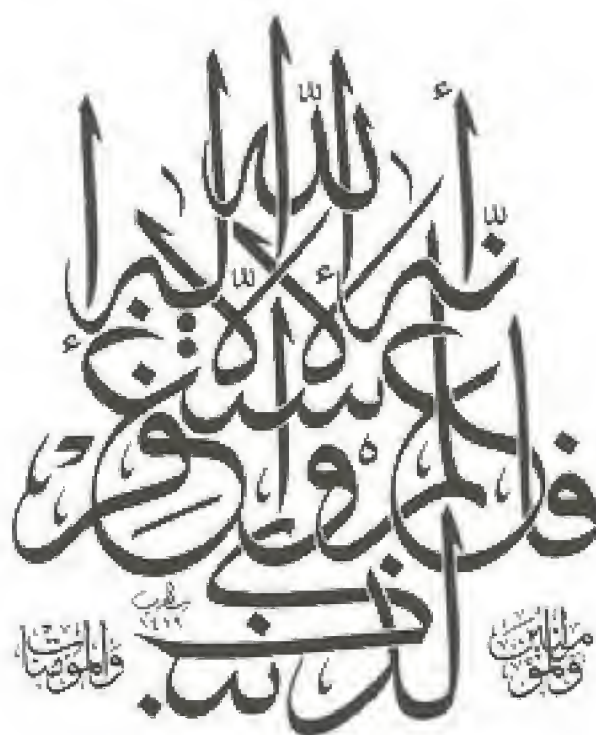 فاعلم أنه لا إله إلا الله واستغفر لذنبك
وللمؤمنين
والمؤمنات
١٤١٩